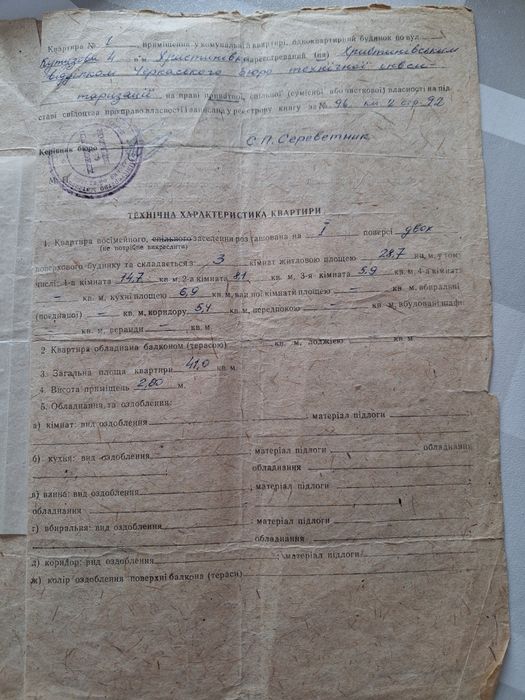 Квартира № 1 приміщення у комунальній квартирі, одноквартирний будинок по вул.
Кутузова 4 в м Христинівка зареєстрований (на) Христинівським
відділком Черкаського бюро технічної інвен-
таризації на праві приватної, спільної (сумісної або часткової) власності на під
ставі свідоцтва про право власності і записана у реєстрову книгу за № 96 кн. 2 стр. 92
Керівник бюро С. П. Сереветник
М. П.
ТЕХНІЧНА ХАРАКТЕРИСТИКА КВАРТИРИ
1. Квартира посімейного, спільного заселення розташована на I поверсі двох
(не потрібне викреслити)
поверхового будинку та складається з: 3 кімнат житловою площею 28,7 кв, м, у том
числі: 1-а кімната 14,7 кв. м, 2-а кімната 8,1 кв. м, 3-я кімната 5,9 кв. м, 4-а кімнат
– кв. м, кухні площею 6,9 кв. м, ванної кімнати площею – кв. м, вбиральні
(поєднаної) – кв. м, коридору 5,4 кв. м, передпокою – кв. м, вбудовані шафи
кв. м, веранди – кв. м
2 Квартира обладнана балконом (терасою) кв. м, лоджією – кв. м
3. Загальна площа квартири 41,0 кв. м
4. Висота приміщень 2,60 м.
5. Обладнання та оздоблення:
а) кімнат: вид оздоблення ; матеріал підлоги
б) кухня: вид оздоблення ; матеріал підлоги обладнання
обладнання
в) ванна: вид оздоблення ; матеріал підлоги
обладнання
г) вбиральня: вид оздоблення ; матеріал підлоги
обладнання
д) коридор: вид оздоблення ; матеріал підлоги
ж) колір оздоблення поверхні балкона (тераси)